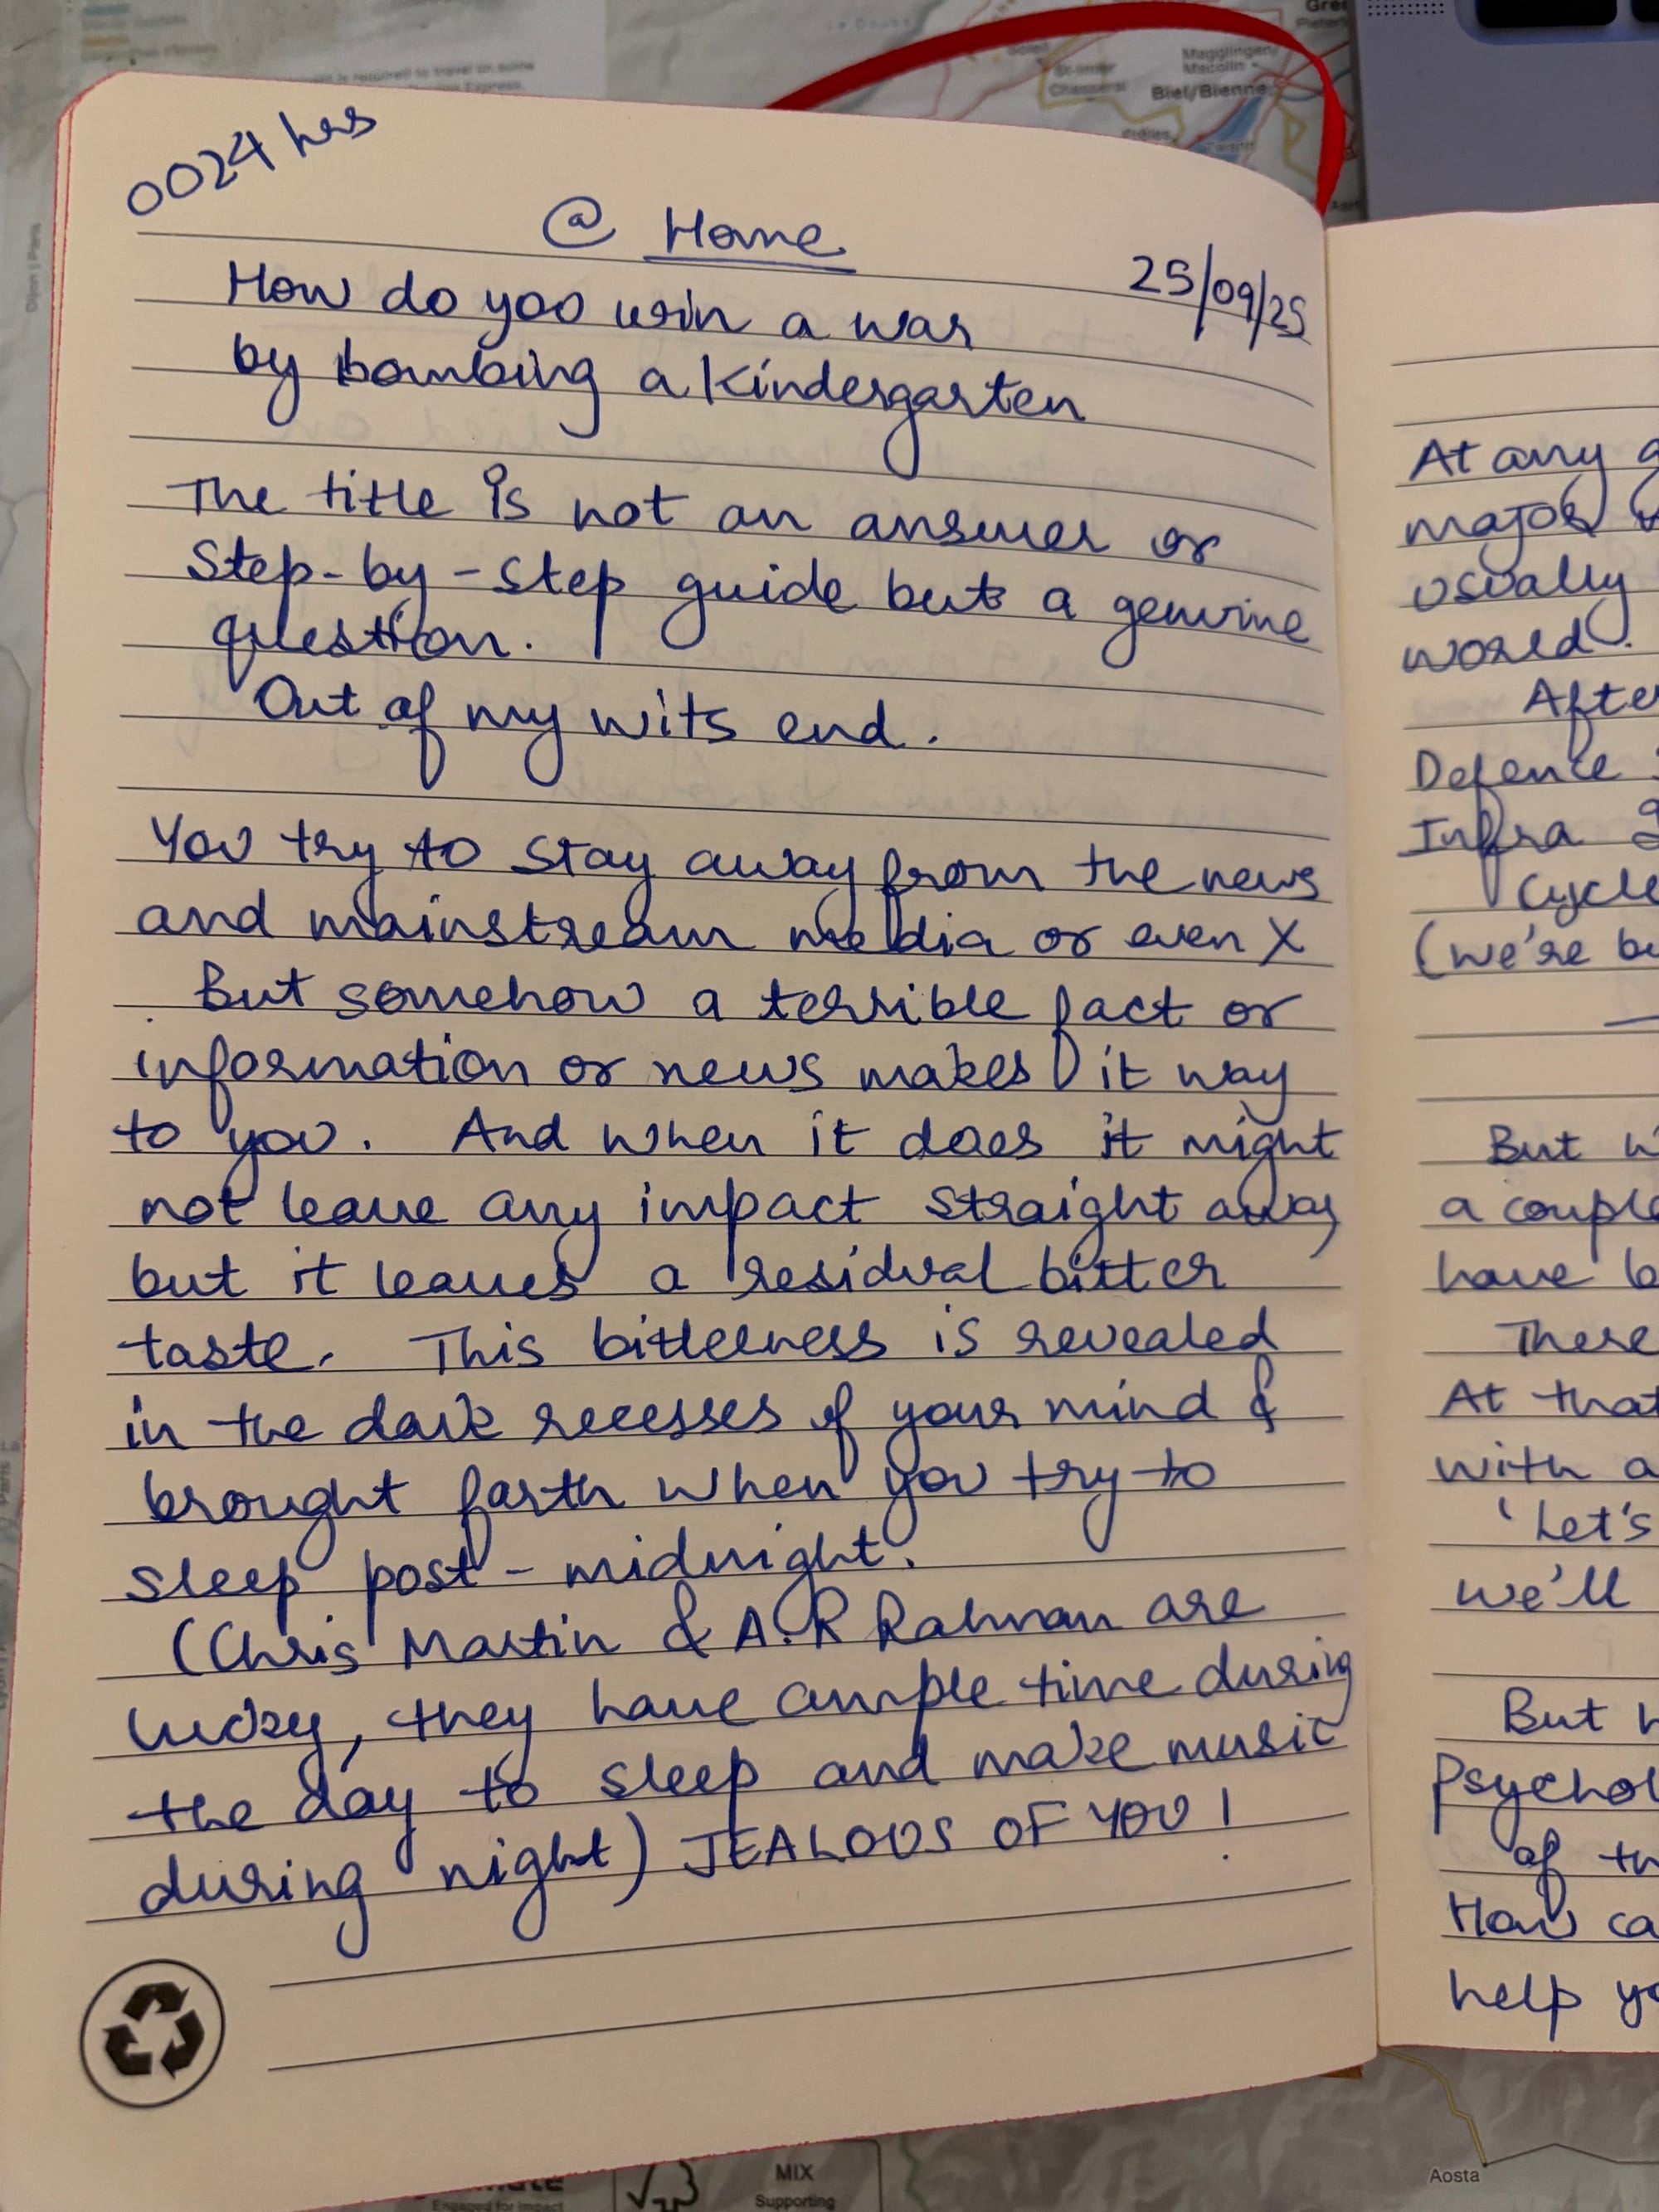 0024 hrs
@ Home
25/09/25
How do you win a war
by bombing a Kindergarten
The title is not an answer or
Step-by-step guide but a genuine
question.
Out of my wits end.
You try to stay away from the news
and mainstream media or even X
But somehow a terrible fact or
information or news makes it way
to you. And when it does it might
not leave any impact straight away
but it leaves a residual bitter
taste. This bitterness is revealed
in the dark recesses of your mind &
brought forth when you try to
sleep post-midnight.
(Chris Martin & A.R Rahman are
lucky, they have ample time during
the day to sleep and make music
during night) JEALOUS OF YOU!
At any
major
usually
world.
After
Defence
Infra
Cycle
(we're
But
a couple
have
There
At that
with a
'Let's
we'll
But
Psychol
of
How ca
help
Magglingen/
Macolin
St-Imier
Chasseral
Biel/Bienne
Twann
Aosta
MIX
Supporting
Engaged for Impact